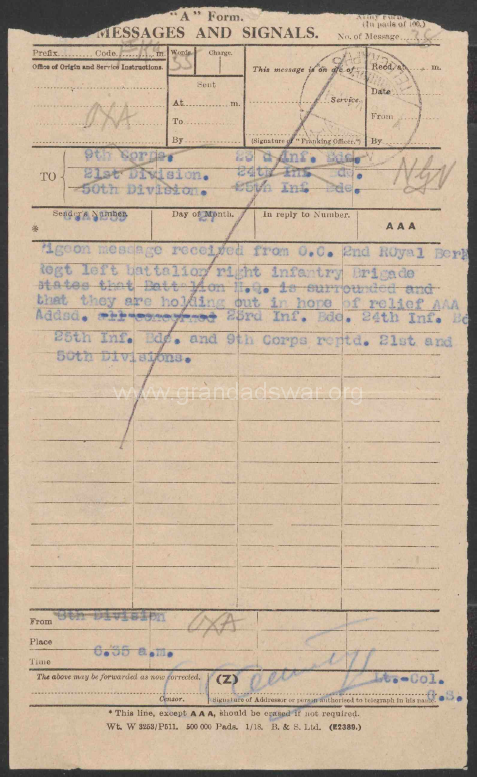 "A" Form.
MESSAGES AND SIGNALS.
Army Form
(In pads of 100.)
No. of Message 38
Prefix Code m.
Words Charge.
35
This message is on a/c of
Recd. at m.
Office of Origin and Service Instructions.
OXA
Sent
At m.
To
By
Service.
(Signature of "Franking Officer.")
Date
From
By
TO
9th Corps. 23rd Inf. Bde.
21st Division. 24th Inf. Bde.
50th Division. 25th Inf. Bde.
NGV
Sender's Number. Day of Month. In reply to Number.
* G.A.239 27 AAA
Pigeon message received from O.C. 2nd ROyal Berk
Regt left battalion right infantry Brigade
states that Battalion H.Q. is surrounded and
that they are holding out in hope of relief AAA
Addsd. all concerned 23rd Inf. Bde. 24th Inf. Bd
25th Inf. Bde. and 9th Corps reptd. 21st and
50th Divisions.
www.grandadswar.org
From 8th Division
OXA
Place
Time 6.35 a.m.
The above may be forwarded as now corrected. (Z) Lt.-Col.
G.S.
Censor. Signature of Addressor or person authorised to telegraph in his name.
* This line, except AAA, should be erased if not required.
Wt. W 3253/P511. 500,000 Pads. 1/18. B. & S. Ltd. (E2389.)